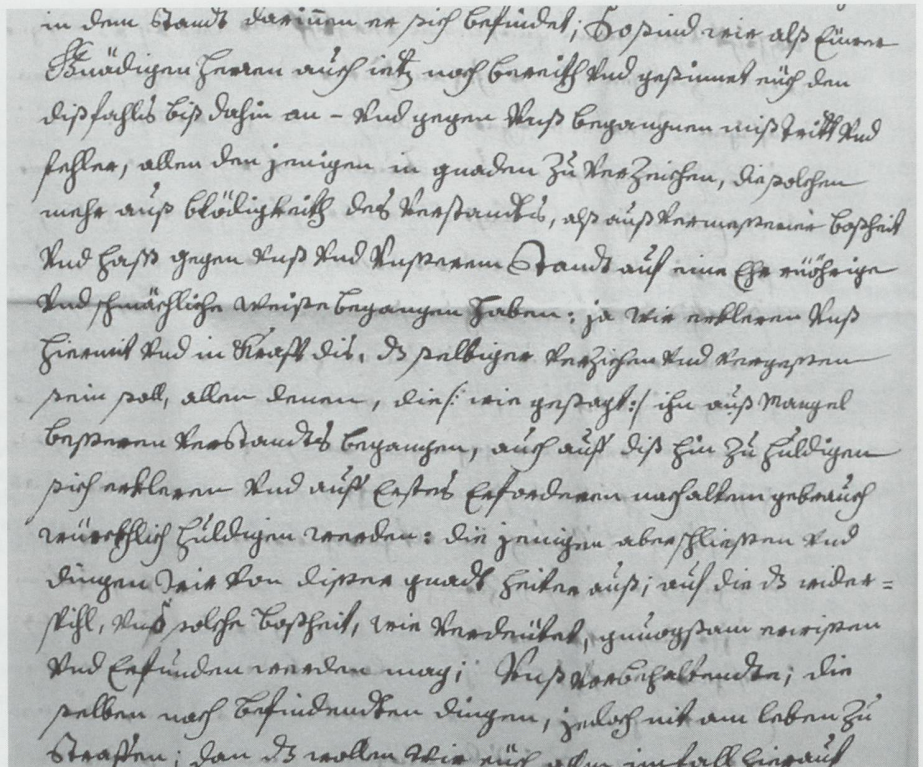 in dem Standt darinnen er sich befindet; So sind wir alß Eüwer
Gnädigen Herren auch ietz noch bereith Vnd gesinnet eüch den
dißfahls biß dahin an - Vnd gegen Vnß begangnen mißtritt Vnd
fehler, allen den jenigen in gnaden Zu Verzeichen, die solchen
mehr auß blödigkeith des Verstandts, alß auß Vermessener boßheit
Vnd Haß gegen Vnß Vnd Vnßerem Standt auf eine Ehrrüörige
Vnd schmächliche weiße begangen haben: ja wir erkleren Vnß
hiermit Vnd in Krafft dis, dz selbiger Verziehen Vnd vergessen
sein soll, allen denen, die /: wie gesagt :/ ihn auß Mangel
besseren Verstandts begangen, auch auff diß hin Zu huldigen
sich erkleren Vnd auff Erstes Erforderen nach altem gebrauch
würckhlich huldigen werden: die jenigen aber schließen Vnd
dingen Wir Von dißer gnadt heiter auß; auf die dz wider=
spihl, Vnd solche boßheit, wie Verdeütet, gnuogsam erwißen
Vnd Erfunden werden mag; Vnß Vorbehaltendte; die
selben nach befindendten dingen, jedoch nit am leben Zu
Straffen; dan dz wollen Wir eüch allen im fall hierauf